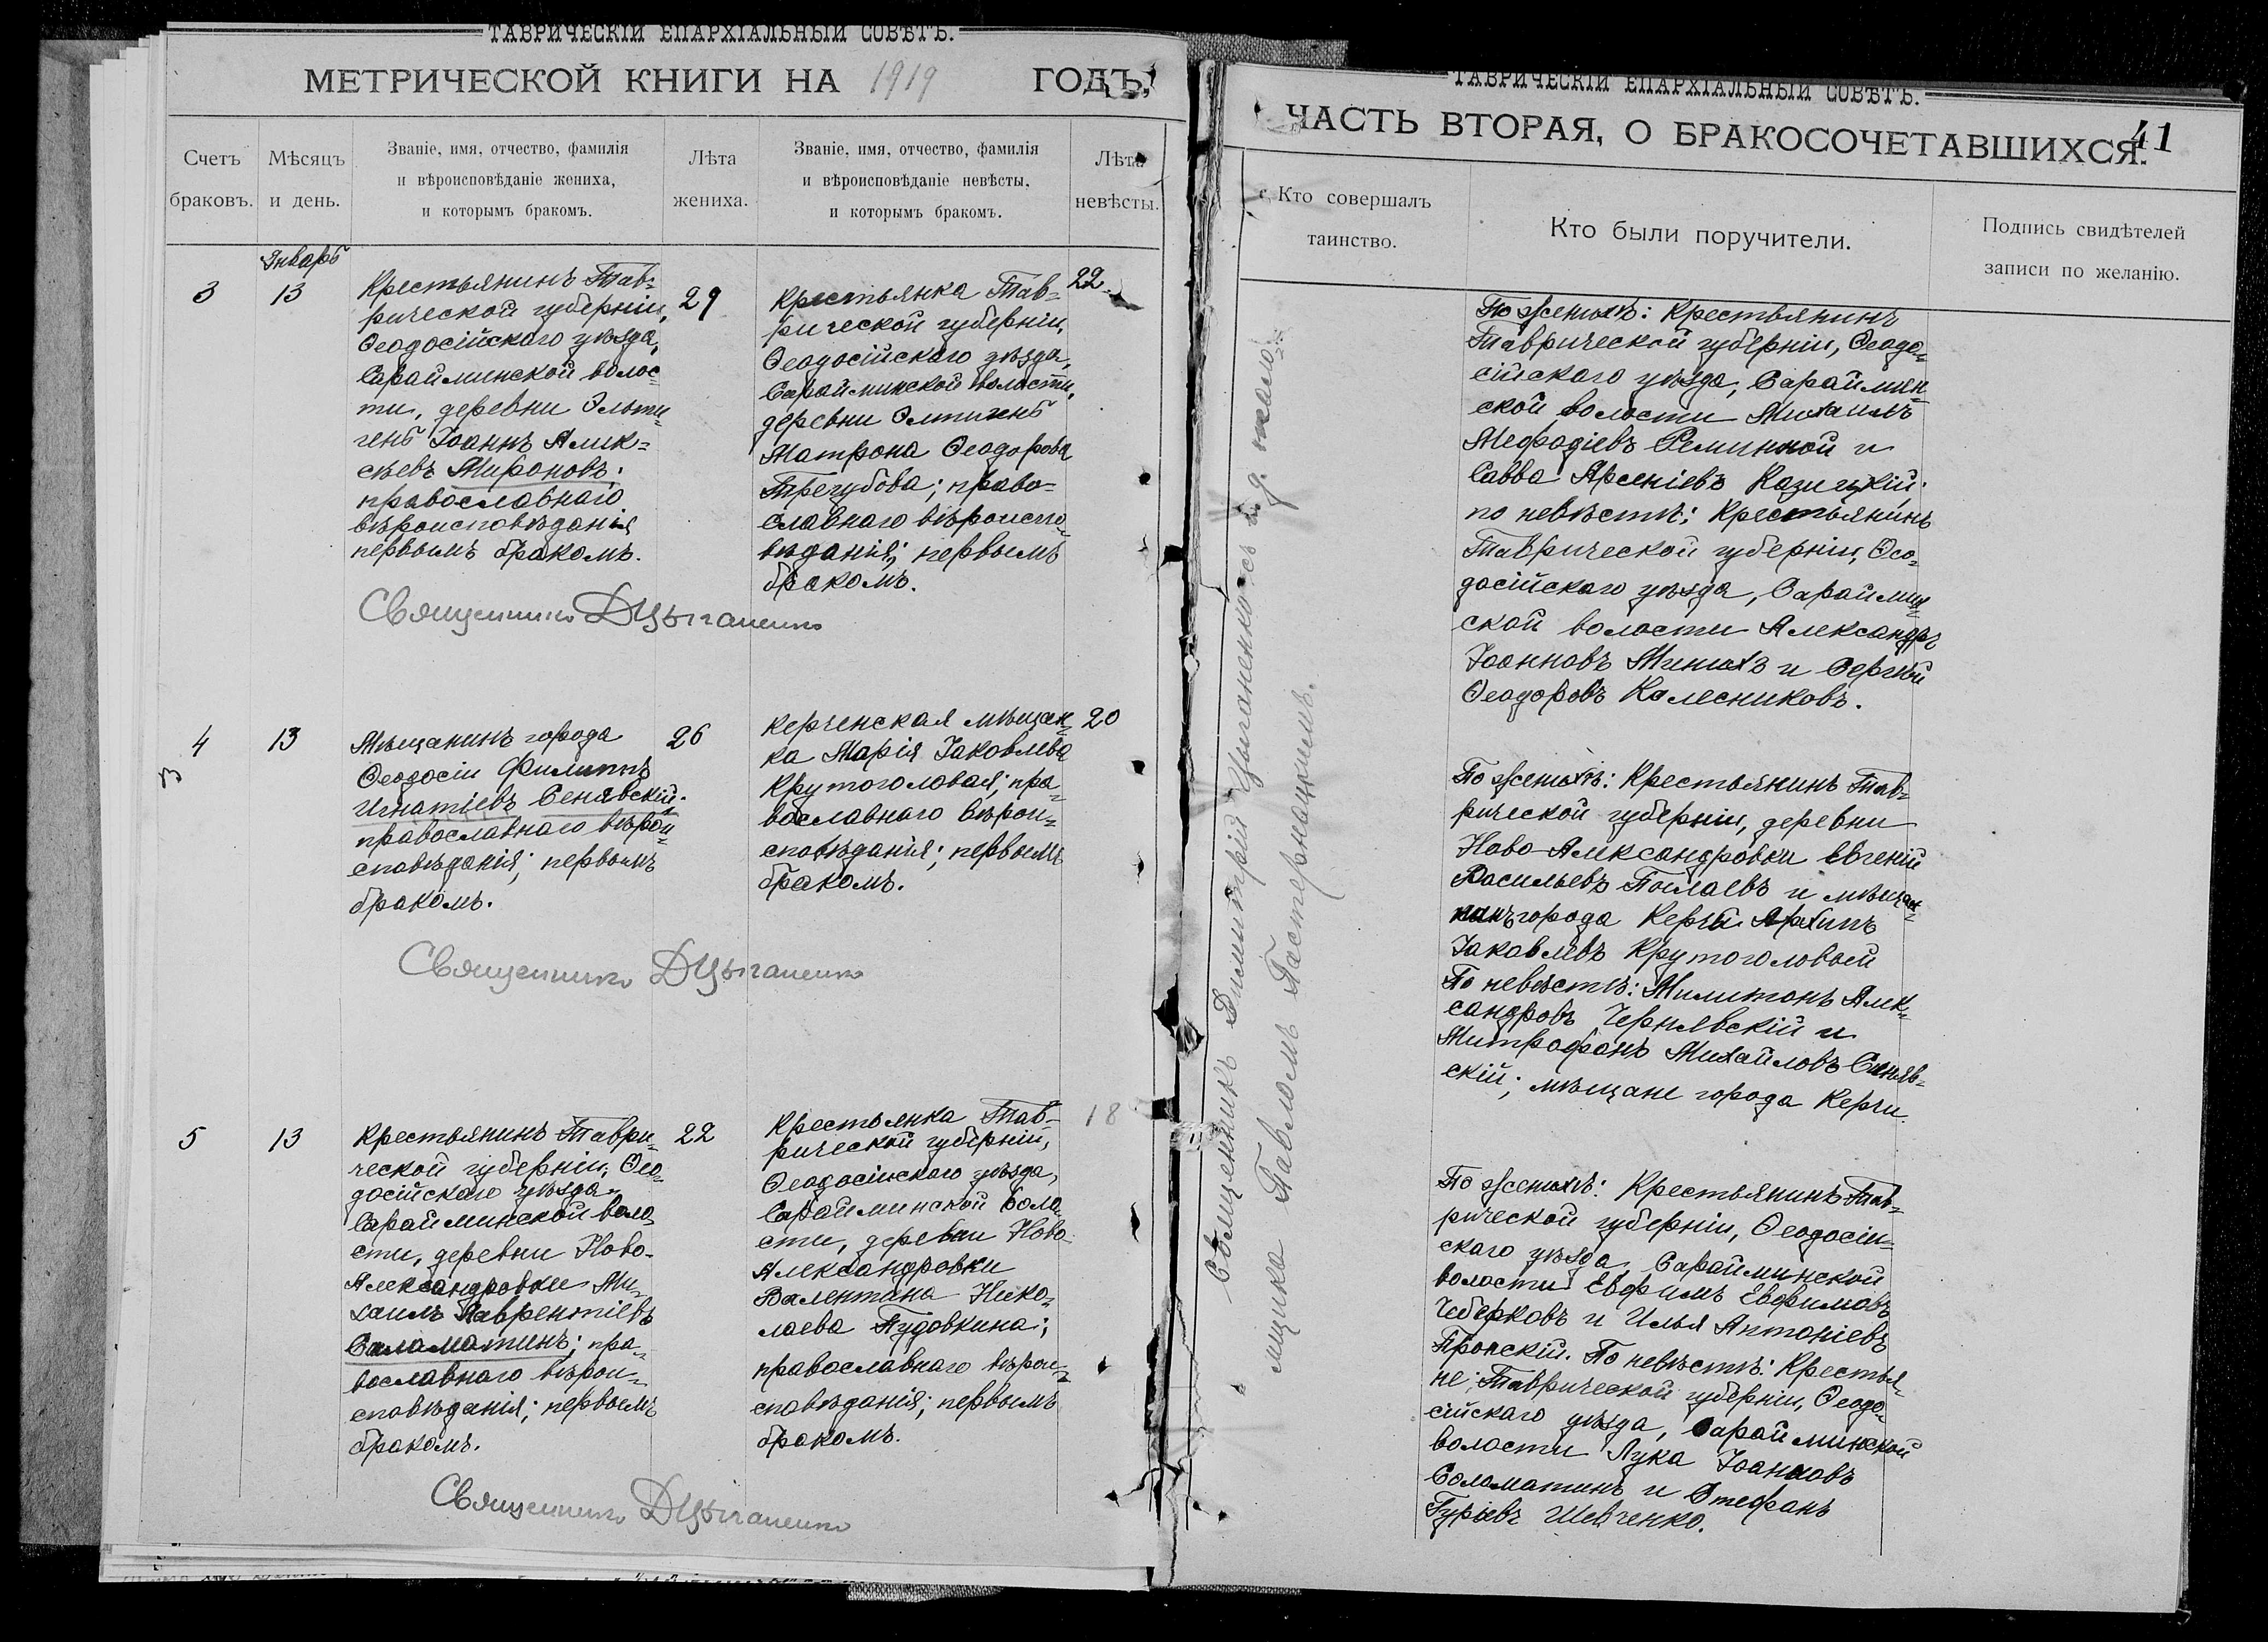 ТАВРИЧЕСКІЙ ЕПАРХІАЛЬНЫЙ СОВѢТЪ.
МЕТРИЧЕСКОЙ КНИГИ НА 1919 ГОДЪ,
Счетъ браковъ.
Мѣсяцъ и день.
Званіе, имя, отчество, фамилія
и вѣроисповѣданіе жениха,
и которымъ бракомъ.
Лѣта жениха.
Званіе, имя, отчество, фамилія
и вѣроисповѣданіе невѣсты,
и которымъ бракомъ.
Лѣта невѣсты.
Январь
3
13
Крестьянинъ Тав-
рической губерніи,
Ѳеодосійскаго уѣзда,
Сарайминской волос-
ти, деревни Эльти-
генъ Іоаннъ Алек-
сѣевъ Мироновъ;
православнаго
вѣроисповѣданія
первымъ бракомъ.
29
Крестьянка Тав-
рической губерніи,
Ѳеодосійскаго уѣзда,
Сарайминской волости,
деревни Элтигенъ
Матрона Ѳеодорова
Трегубова; право-
славнаго вѣроиспо-
вѣданія; первымъ
бракомъ.
22
Священникъ Д Цыганенко
4
13
Мѣщанинъ города
Ѳеодосіи Филиппъ
Игнатіевъ Сенявскій.
православнаго вѣрои-
сповѣданія; первымъ
бракомъ.
26
Керченская мѣщан-
ка Марія Іаковлева
Крутоголовая; пра-
вославнаго вѣрои-
сповѣданія; первымъ
бракомъ.
20
3
Священникъ Д Цыганенко
5
13
Крестьянинъ Таври-
ческой губерніи, Ѳео-
досійскаго уѣзда
Сарайминской воло-
сти, деревни Ново-
Александровки Ми-
хаилъ Лаврентіевъ
Саламатинъ; пра-
вославнаго вѣрои-
сповѣданія; первымъ
бракомъ.
22
Крестьянка Тав-
рической губерніи,
Ѳеодосійскаго уѣзда,
Сарайминской воло-
сти, деревни Ново-
Александровки
Валентина Нико-
лаева Пудовкина;
православнаго вѣрои-
сповѣданія; первымъ
бракомъ.
18
Священникъ Д Цыганенко
ТАВРИЧЕСКІЙ ЕПАРХІАЛЬНЫЙ СОВѢТЪ.
ЧАСТЬ ВТОРАЯ, О БРАКОСОЧЕТАВШИХСЯ.
41
Кто совершалъ
таинство.
Кто были поручители.
Подпись свидѣтелей
записи по желанію.
Священникъ Димитрій Цыганенко съ и. д. псалом-
щика Павломъ Пастернацкимъ.
По женихѣ: Крестьянинъ
Таврической губерніи, Ѳеодо-
сійскаго уѣзда, Сараймин-
ской волости Михаилъ
Меѳодіевъ и
Савва Арсеніевъ Казицкій.
по невѣстѣ: Крестьянинъ
Таврической губерніи, Ѳео-
досійскаго уѣзда, Сараймин-
ской волости Александръ
Іоанновъ Минихъ и Сергѣй
Ѳеодоровъ Колесниковъ.
По женихѣ: Крестьянинъ Тав-
рической губерніи, деревни
Ново-Александровки Евгеній
Васильевъ и мѣщан-
инъ города Керчи Архипъ
Іаковлевъ Крутоголовый
По невѣстѣ: Милитонъ Алек-
сандровъ Чернявскій и
Митрофанъ Михайловъ Синяв-
скій; мѣщане города Керчи.
По женихѣ: Крестьянинъ Тав-
рической губерніи, Ѳеодосій-
скаго уѣзда, Сарайминской
волости Евфимъ Евфимовъ
Чеберковъ и Илья Антоніевъ
Пронскій. По невѣстѣ: Крестья-
не; Таврической губерніи, Ѳеодо-
сійскаго уѣзда, Сарайминской
волости Лука Іоанновъ
Соломатинъ и Стефанъ
Гуріевъ Шевченко.